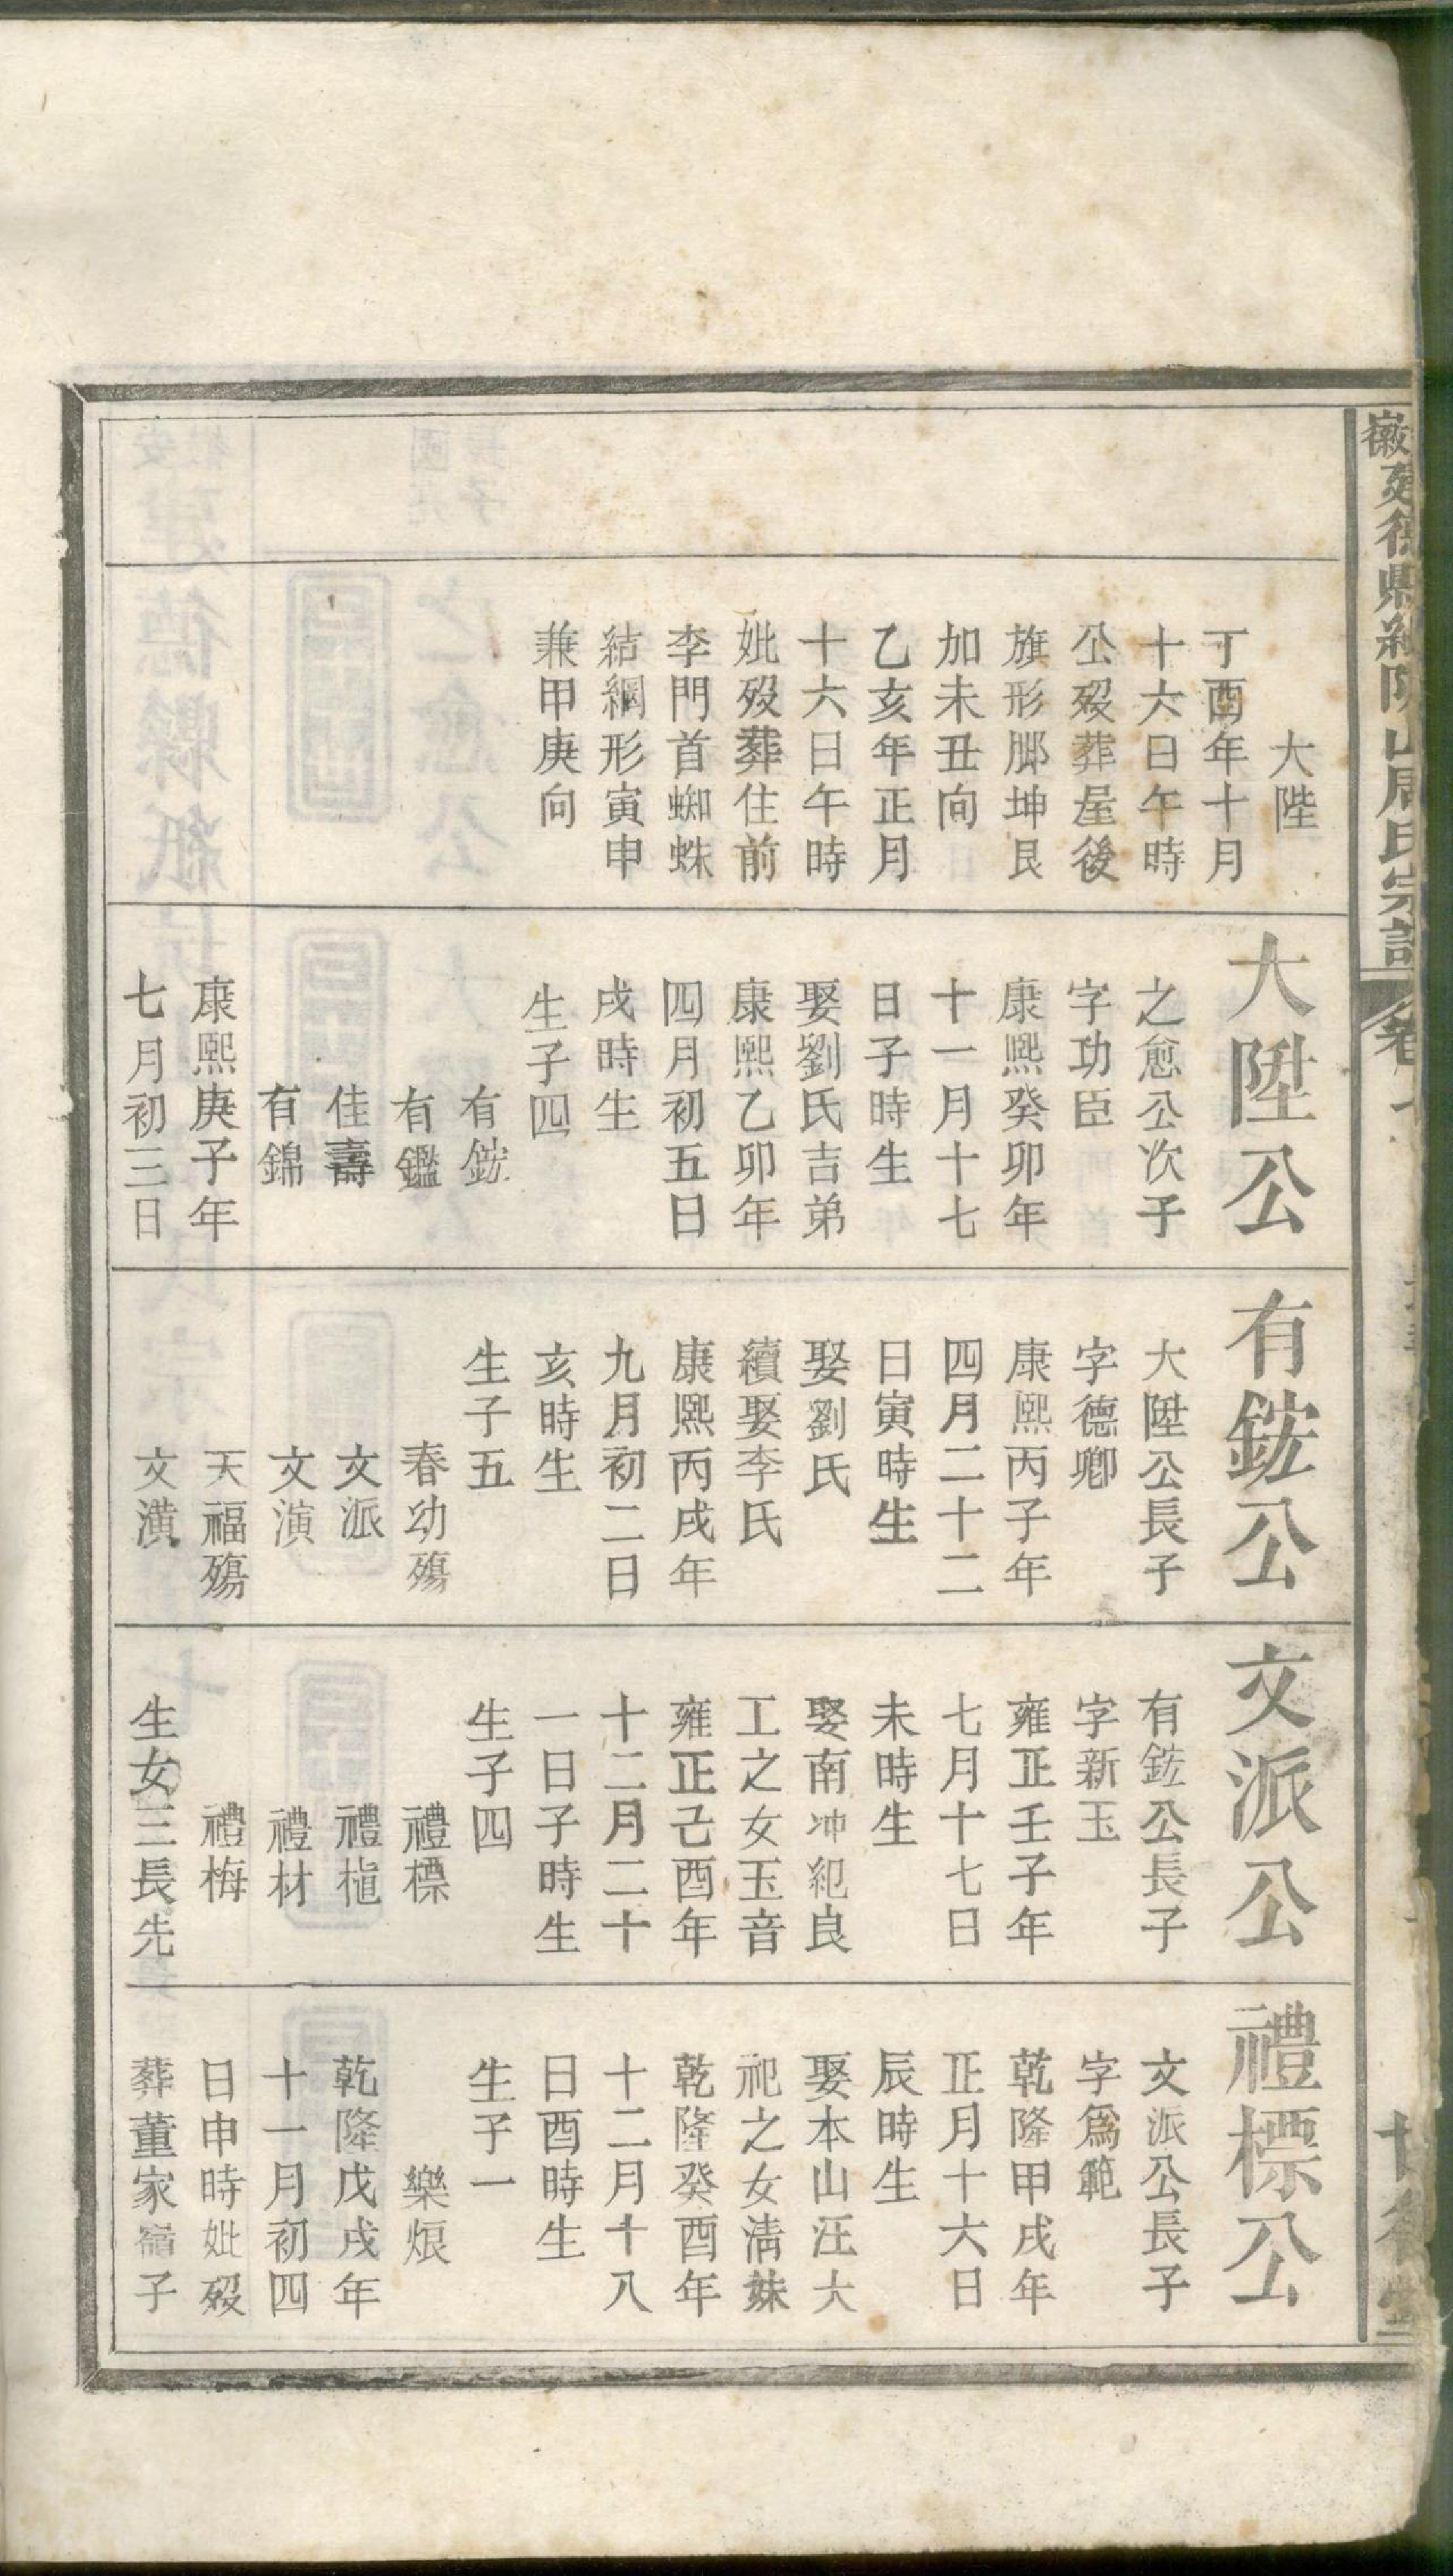 大陞
丁酉年十月
十六日午時
公歿葬屋後
旗形𦙶坤艮
加未丑向
乙亥年正月
十六日午時
妣歿葬住前
李門首蜘蛛
結網形寅申
兼甲庚向
大陞公
之愈公次子
字功臣
康熙癸卯年
十一月十七
日子時生
娶劉氏吉弟
康熙乙卯年
四月初五日
戌時生
生子四
有鋐
有鑑
佳壽
有錦
康熙庚子年
七月初三日
有鋐公
大陞公長子
字德卿
康熙丙子年
四月二十二
日寅時生
娶劉氏
續娶李氏
康熙丙戌年
九月初二日
亥時生
生子五
春幼殤
文派
文演
天福殤
文潢
文派公
有鋐公長子
字新玉
雍正壬子年
七月十七日
未時生
娶南冲紀良
工之女玉音
雍正己酉年
十二月二十
一日子時生
生子四
禮標
禮植
禮材
禮梅
生女三長先
禮標公
文派公長子
字爲範
乾隆甲戌年
正月十六日
辰時生
娶本山汪大
祀之女清妹
乾隆癸酉年
十二月十八
日酉時生
生子一
樂烺
乾隆戊戌年
十一月初四
日申時妣歿
葬董家嶺子